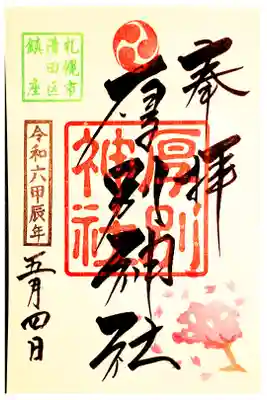 奉拝
厚別神社
厚別
神社
札幌市
清田区
鎮座
令和六甲辰年
五月四日